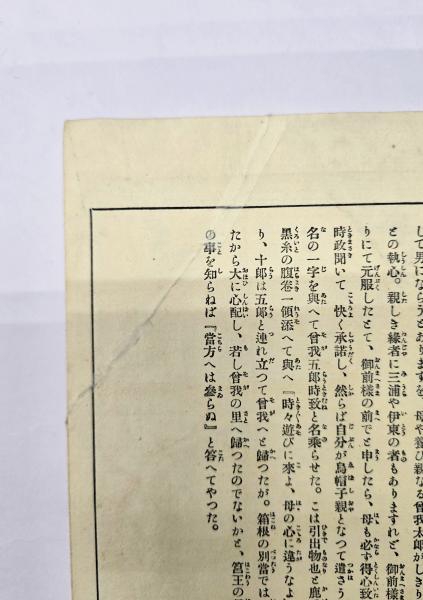 して男になら
との執心。親しき縁者に三浦や伊東の者もありますれど、御前様
りにて元服したとて、御前様の前でと申したら、母も必ず得心致
時政聞いて快く承諾し、然らば自分が烏帽子親となつて遣さう
名の一字を與へて曾我五郎時致と名乘らせた。こは引出物也と鹿
黒糸の腹卷一領添へて與へ『時々遊びに來よ、母の心に違うなよ
り、十郎は五郎と連れ立つて曾我へと歸つたが。箱根の別當では
たから大に心配し、若し曾我の里へ歸つたのでないかと、筥王の
の事を知らねば『當方へは參らぬ』と答へてやつた。